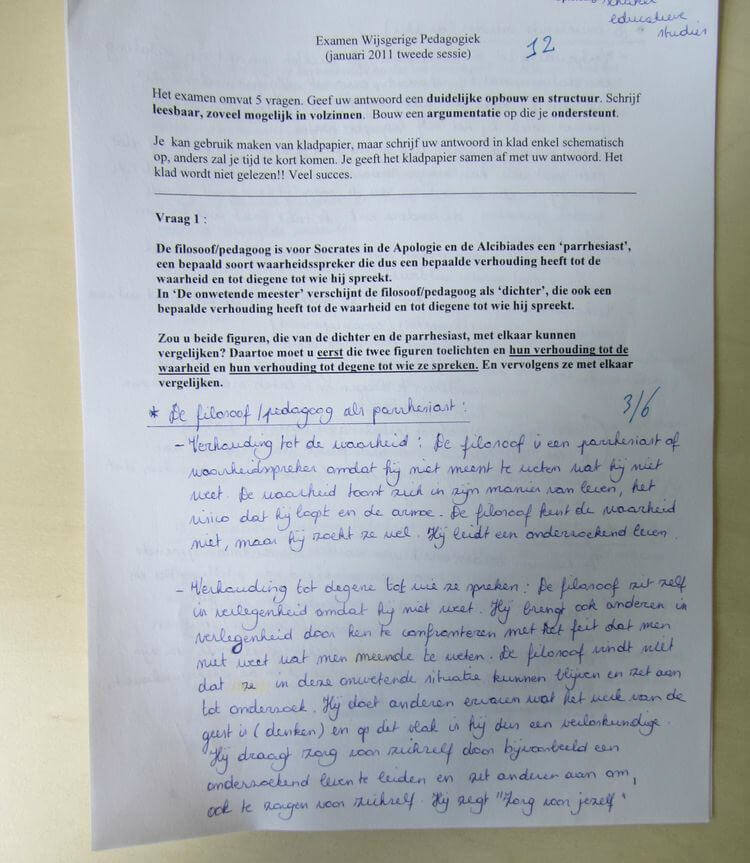 schakel
educatieve
studies
Examen Wijsgerige Pedagogiek
(januari 2011 tweede sessie)
12
Het examen omvat 5 vragen. Geef uw antwoord een duidelijke opbouw en structuur. Schrijf
leesbaar, zoveel mogelijk in volzinnen. Bouw een argumentatie op die je ondersteunt.
Je kan gebruik maken van kladpapier, maar schrijf uw antwoord in klad enkel schematisch
op, anders zal je tijd te kort komen. Je geeft het kladpapier samen af met uw antwoord. Het
klad wordt niet gelezen!! Veel succes.
Vraag 1 :
De filosoof/pedagoog is voor Socrates in de Apologie en de Alcibiades een ‘parrhesiast’,
een bepaald soort waarheidsspreker die dus een bepaalde verhouding heeft tot de
waarheid en tot diegene tot wie hij spreekt.
In ‘De onwetende meester’ verschijnt de filosoof/pedagoog als ‘dichter’, die ook een
bepaalde verhouding heeft tot de waarheid en tot diegene tot wie hij spreekt.
Zou u beide figuren, die van de dichter en de parrhesiast, met elkaar kunnen
vergelijken? Daartoe moet u eerst die twee figuren toelichten en hun verhouding tot de
waarheid en hun verhouding tot degene tot wie ze spreken. En vervolgens ze met elkaar
vergelijken.
3/6
* De filosoof/pedagoog als parrhesiast:
- Verhouding tot de waarheid : De filosoof is een parrhesiast of
waarheidspreker omdat hij niet meent te weten wat hij niet
weet. De waarheid toont zich in zijn manier van leven, het
risico dat hij loopt en de armoe. De filosoof kent de waarheid
niet, maar hij zoekt ze wel. Hij leidt een onderzoekend leven.
- Verhouding tot degene tot wie ze spreken : De filosoof zit zelf
in verlegenheid omdat hij niet weet. Hij brengt ook anderen in
verlegenheid door hen te confronteren met het feit dat men
niet weet wat men meende te weten. De filosoof vindt niet
dat ze in deze onwetende situatie kunnen blijven en zet aan
tot onderzoek. Hij doet anderen ervaren wat het werk van de
geest is (denken) en op dat vlak is hij dus een verloskundige.
Hij draagt zorg voor zichzelf door bijvoorbeeld een
onderzoekend leven te leiden en zet anderen aan om,
ook te zorgen voor zichzelf. Hij zegt "Zorg voor jezelf"